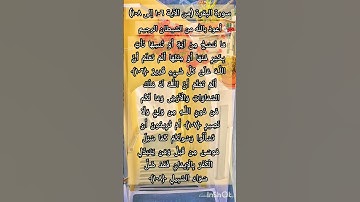 سورة البقرة (من الآية ١٠٦ إلى ١٠٨)
أعوذ بالله من الشيطان الرجيم
ما ننسخ من آية أو ننسها نأت
بخير منها أو مثلها ألم تعلم أن
الله على كل شيء قدير (١٠٦)
ألم تعلم أن الله له ملك
السماوات والأرض وما لكم
من دون الله من ولي ولا
نصير (١٠٧) أم تريدون أن
تسألوا رسولكم كما سئل
موسى من قبل ومن يتبدل
الكفر بالإيمان فقد ضل
سواء السبيل (١٠٨)
InShOt